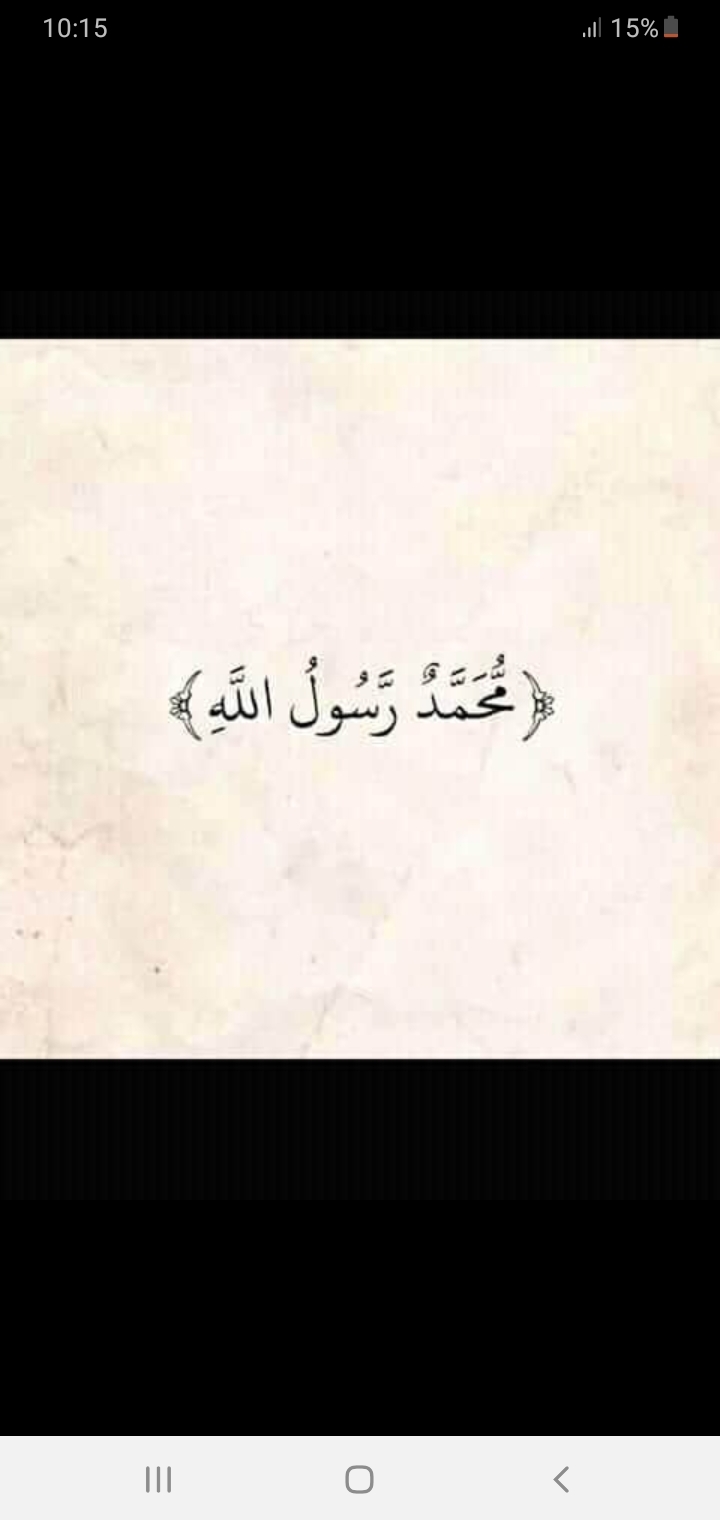 10:15
15%
﴿مُّحَمَّدٌ رَّسُولُ اللَّهِ﴾